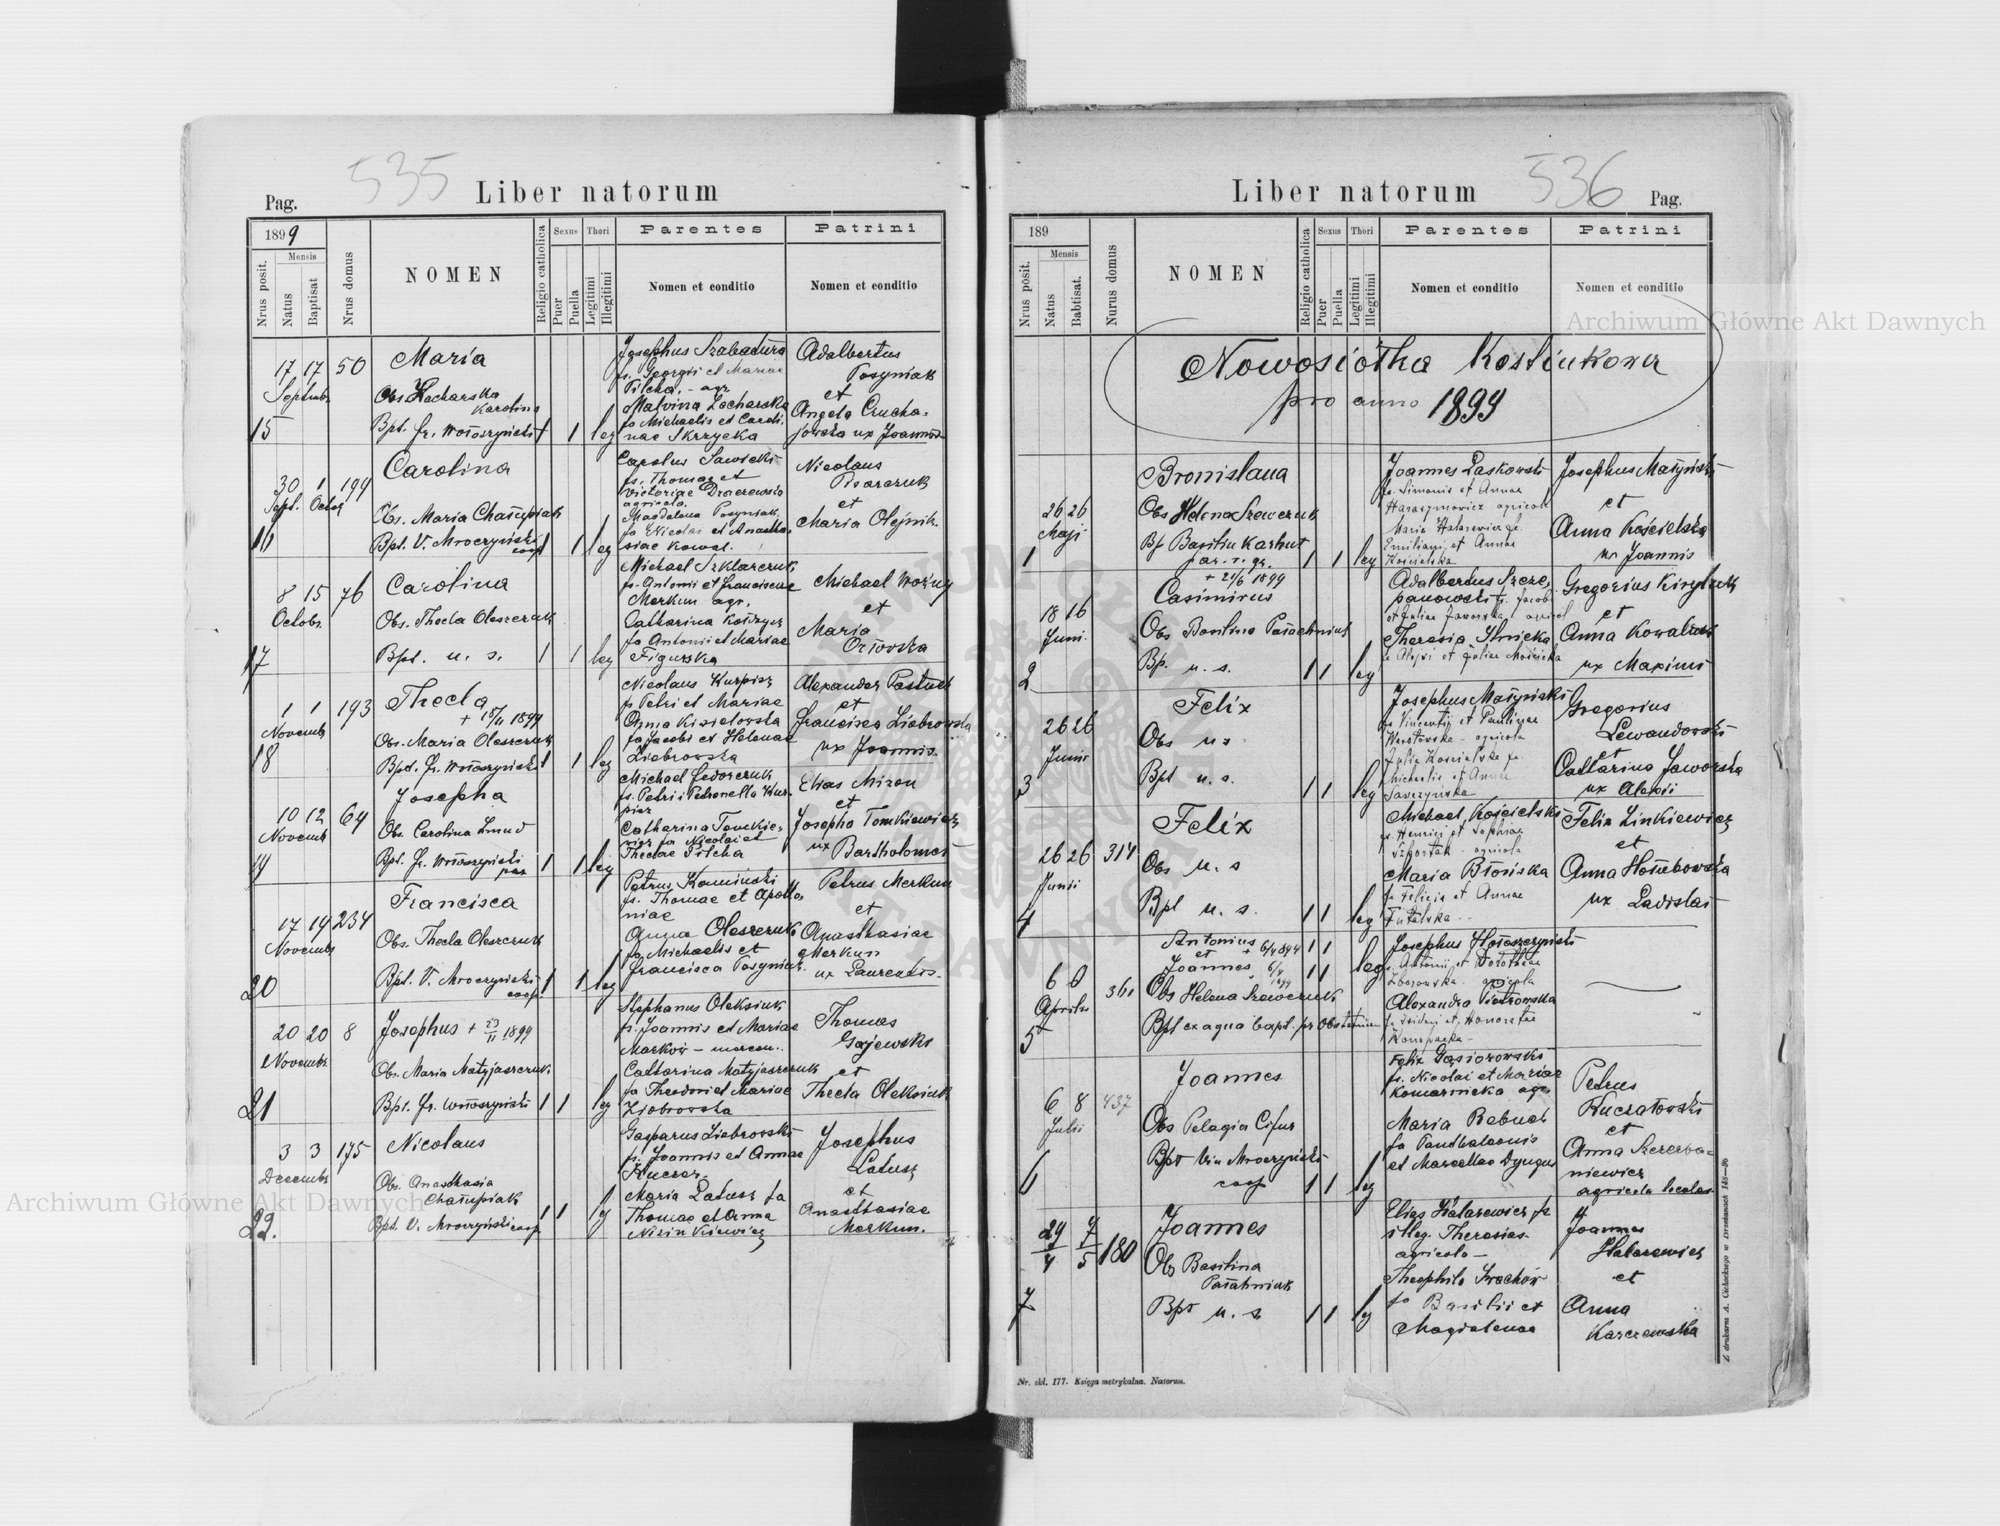 535
Pag.
Liber natorum
1899
Nrus posit.
Mensis
Natus
Baptisat
Nrus domus
NOMEN
Religio catholica
Sexus
Puer
Puella
Thori
Legitimi
Illegitimi
Parentes
Nomen et conditio
Patrini
Nomen et conditio
17 17 50
Septemb.
15
Maria
Karolina
Bpt. fr. Wołoszyński
1 leg
Josephus Szabatura
fs. Georgii et Mariae
Pilcha. - agr.
Malvina Zacharska
fa Michaelis et Caroli-
nae Skrzycka
Adalbertus
Posyniak
et
Angela Crucha-
jowska ux Joannis
30 1 199
Sept. Octob
16
Carolina
Obs. Maria Chałupiak
Bpt. V. Mroczyński
coop
1 leg
Carolus Sawicki
fs. Thomae et
Victoriae
agricola.
Magdalena Posyniak
fa Nicolai et Anasta-
siae Kowal.
Nicolaus
Pisarczuk
et
Maria Olejnik.
8 15 76
Octobr.
17
Carolina
Obs. Thecla Oleszczuk
Bpt. u. s. 1 1 leg
Michael Szklarczuk
fs. Antonii et Franciscae
Merkun agr.
Catharina
fa Antonii et Mariae
Figurska
Michael Woźny
et
Maria
Orłowska
1 1 193
Novemb
18
Thecla
+ 18/11 1899
Obs. Maria Oleszczuk
Bpt. fr. Wołoszyński 1 1 leg
Nicolaus Kurpisz
fs Petri et Mariae
Anna Kisielowska
fa Jacobi et Helenae
Ziobrowska
Alexander Pastuch
et
Francisca Ziobrowska
ux Joannis.
10 12 64
Novemb
19
Josepha
Obs. Carolina
Bpt. fr. Wołoszyński
par 1 1 leg
Michael Fedorczuk
fs. Petri i Petronella Kur-
pisz
Catharina Tomkie-
wicz fa Nicolai et
Theclae Pilcha
Elias Mizon
et
Josepha Tomkiewicz
ux Bartholomei
17 19 234
Novemb
20
Francisca
Obs. Thecla Oleszczuk
Bpt. V. Mroczyński
coop 1 1 leg
Petrus Kamiński
fs. Thomae et Apollo-
niae
Anna Oleszczuk
fa Michaelis et
Francisca Posyniak
Petrus Merkun
et
Anasthasiae
Merkun
ux Laurentis.
20 20 8
Novemb
21
Josephus + 23/11 1899
Obs. Maria Matyjaszczuk
Bpt. fr. Wołoszyński 1 1 leg
Stephanus Oleksiuk
fs. Joannis et Mariae
Catharina Matyjaszczuk
fa Theodori et Mariae
Ziobrowska
Thomas
Gajewski
et
Thecla Oleksiuk
3 3 175
Decemb
22.
Nicolaus
Obs. Anasthasia
Chałupiak
Bpt. V. Mroczyński coop 1 1 leg
Gasparus Ziobrowski
fs. Joannis et Annae
Kuczer
Maria Latusz fa
Thomae et Anna
Josephus
Latusz
et
Anasthasiae
Merkun.
Liber natorum
536
Pag.
189
Nrus posit.
Mensis
Natus
Babtisat.
Nurus domus
NOMEN
Religio catholica
Sexus
Puer
Puella
Thori
Legitimi
Illegitimi
Parentes
Nomen et conditio
Patrini
Nomen et conditio
Nowosiółka Kostiukowa
pro anno 1899
26 26
Maji
1
Bronislaua
Obs Helena Szewczuk
Bp Basiliu Karhut
par. r. gr.
1 1 leg
Joannes Laskowski
fs. Simonis et Annae
Haraszymowicz agricola
Maria Hatarewicz fa.
Emiliani et Annae
Kościelska
Josephus Małyński
et
Anna Kościelska
ux Joannis
18 16
Juni.
2
+ 21/6 1899
Casimirus
Obs Basilina Pasichniuk
Bp. u. s. 1 1 leg
Adalbertus Szcze-
panowski fs. Jacobi
et Juliae Jaworska agricol
Theresia Ilnicka
fa Alojsi et Juliae Mościcka
Gregorius
et
Anna Kowaliuk
ux Maximi
26 26
Junii
3
Felix
Obs u s
Bpt u. s. 1 1 leg
Josephus Małyński
fs. Vincentij et Paulinae
agricola
Julia Kościelska fa.
Michaelis et Annae
Gregorius
Lewandowski
et
Cattarina Jaworska
ux Alexii
26 26 314
Junii
4
Felix
Obs u. s
Bpt u. s. 1 1 leg
Michael Kościelski
fs. Henrici et Sophiae
agricola
Maria Błońska
fa Felicis et Annae
Felix Linkiewicz
et
Anna Hołubowska
ux Ladislai
6 6 361
Aprilis
5
Antonius + 6/4 1899 1 1
et
Joannes + 6/4 1899 1 1 leg
Obs Helena Szewczuk
Bpt ex aqua bapt. pr Obstetricem
Josephus Hołoszczyński
fs. Antonii et Dorotheae
Zborowska. agricola
Alexandra Piotrowska
et Honoratae
6 8 437
Julii
6
Joannes
Obs Pelagia Cifur
Bpt Vin Mroczyński
coop 1 1 leg
Felix Gąsiorowski
fs. Nicolai et Mariae
Komarnicka agr.
Maria Babuch
fa Panthaleonis
et Marcellae Dyngus
Petrus
Kuczałowski
et
Anna Szczerba-
niewicz
agricola locales
29/4 7/5 180
7
Joannes
Obs Basilina
Pasichniuk
Bpt u. s 1 1 leg
Elias Hatarewicz fs
illeg. Theresias
agricola -
Theophila Iwachów
fa Basilii et
Magdalenae
Joannes
Hatarewicz
et
Anna
Karczewska
Nr. skl. 177. Księga metrykalna. Natorum.
Z drukarni A. Cichockiego w Brzeżanach 148—96
Archiwum Główne Akt Dawnych
Archiwum Główne Akt Dawnych